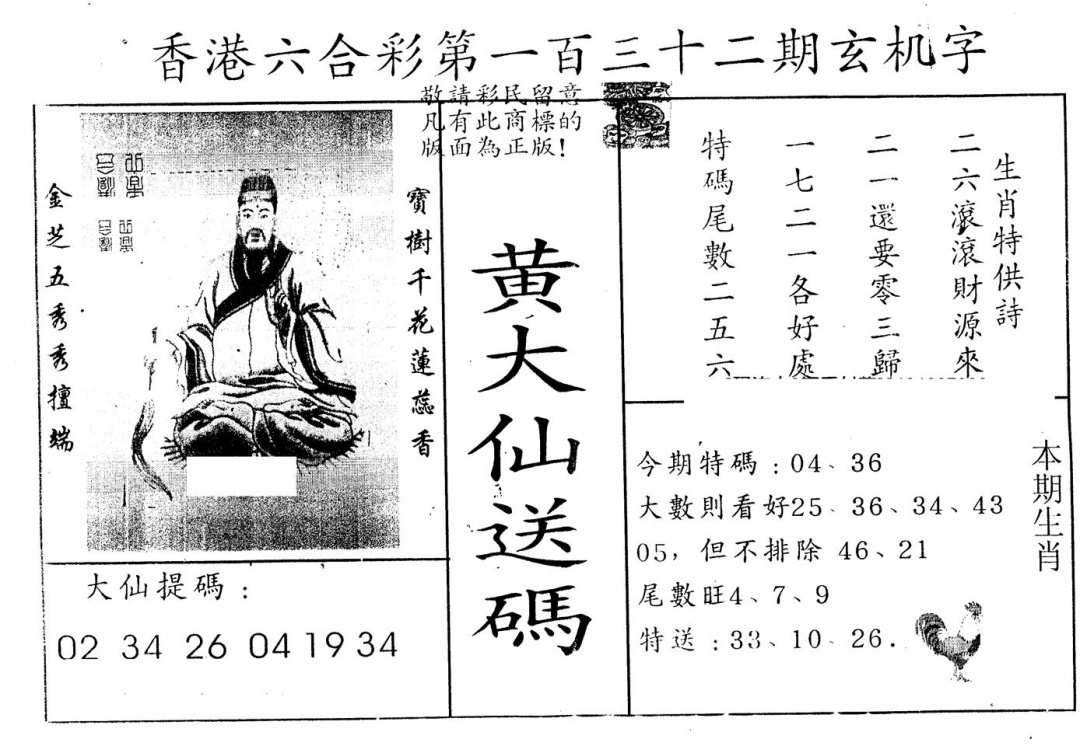 香港六合彩第一百三十二期玄机字
敬請彩民留意
凡有此商標的
版面為正版!
寶樹千花蓮蕊香
金芝五秀秀擅端
大仙提碼:
02 34 26 04 19 34
黄大仙送碼
生肖特供詩
二六滾滾財源來
二一還要零三歸
一七二一各好處
特碼尾數二五六
本期生肖
今期特碼:04、36
大數則看好25、36、34、43
05，但不排除 46、21
尾數旺4、7、9
特送:33、10、26.